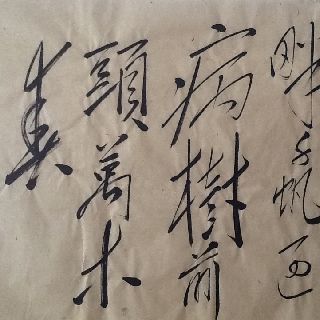 畔千帆過
病樹前
頭萬木
春